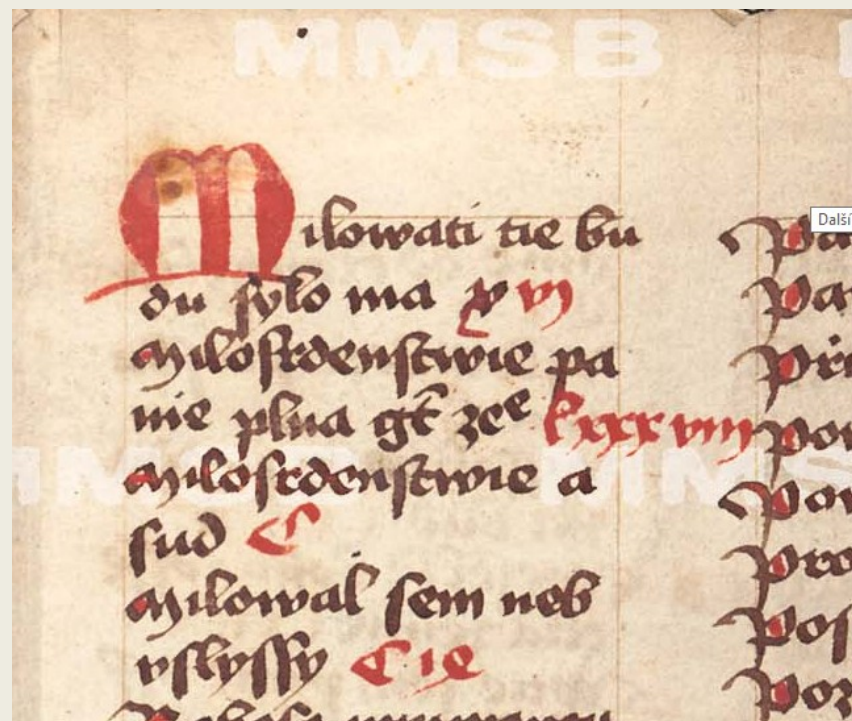 MMSB
Milowati tie bu
du sylo ma xvij
Milosrdenstwie pa
nie plna gt zee lxxxviij
Milosrdenstwie a
sud C
Milowal sem neb
vslyssy C
Další
Pa
Pa
Při
Pow
Pow
Pro
Pos
Poz